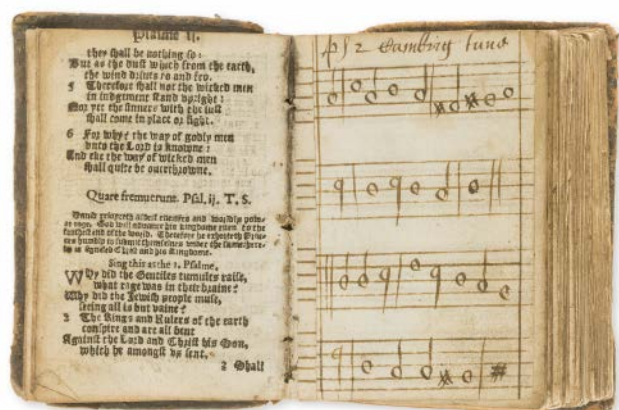 Psalme ij.
they shall be nothing so:
But as the dust which from the earth,
the wind driues to and fro.
5 Therefore shall not the wicked men
in iudgement stand vpright:
Nor yet the sinners with the iust
shall come in place or sight.
6 For why? the way of godly men
vnto the Lord is knowne:
And eke the way of wicked men
shall quite be ouerthrowne.
Quare fremuerunt. Psal. ij. T. S.
Sing this as the 1. Psalme.
WHy did the Gentiles tumults raise,
what rage was in their braine?
Why did the Jewish people muse,
seeing all is but vaine?
2 The Kings and Rulers of the earth
conspire and are all bent
Against the Lord and Christ his Son,
which he amongst vs sent.
3 Shall
ps 2 Cambrig tune